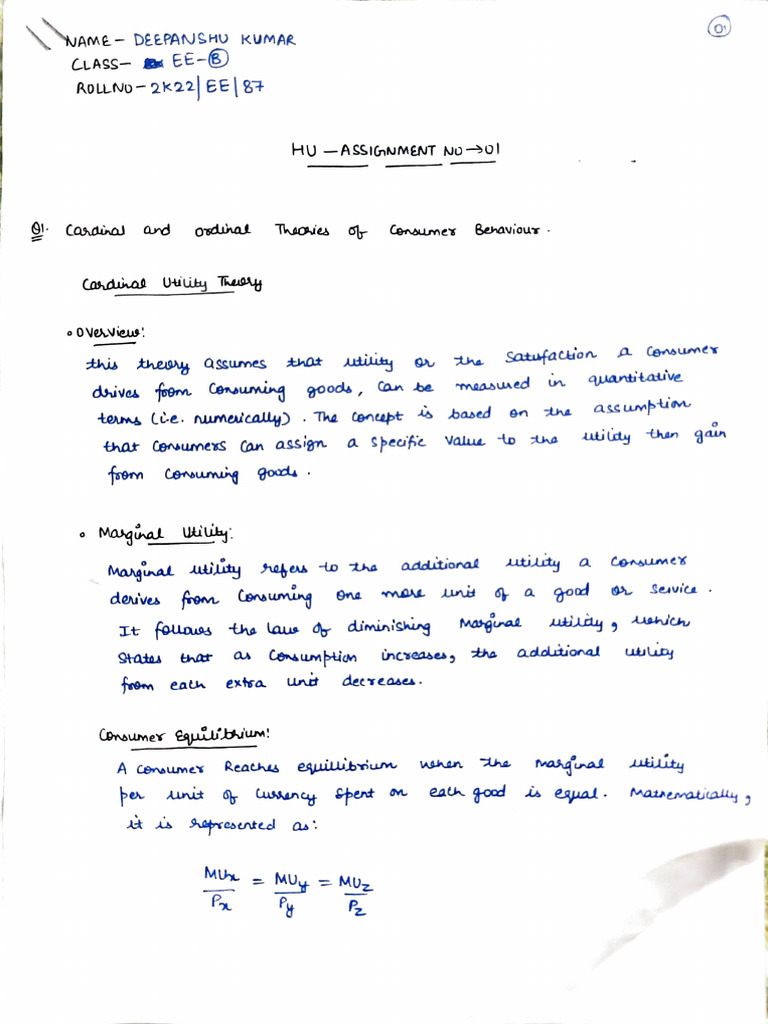 01
NAME- DEEPANSHU KUMAR
CLASS- EE-B
ROLLNO-2K22/EE/87
HU-ASSIGNMENT NO→01
Q1. Cardinal and ordinal Theories of Consumer Behaviour.
Cardinal Utility Theory
• Overview:
this theory assumes that utility or the Satisfaction a Consumer
drives from Consuming goods, Can be measured in quantitative
terms (i.e. numerically). The Concept is based on the assumption
that Consumers Can assign a specific Value to the utility then gain
from Consuming goods.
• Marginal Utility:
Marginal utility refers to the additional utility a Consumer
derives from Consuming one more unit of a good or service.
It follows the law of diminishing Marginal utility, which
States that as Consumption increases, the additional utility
from each extra unit decreases.
Consumer Equilibrium:
A Consumer Reaches equillibrium when the marginal utility
per unit of Currency Spent on each good is equal. Mathematically,
it is represented as:
MUx/Px = MUy/Py = MUz/Pz